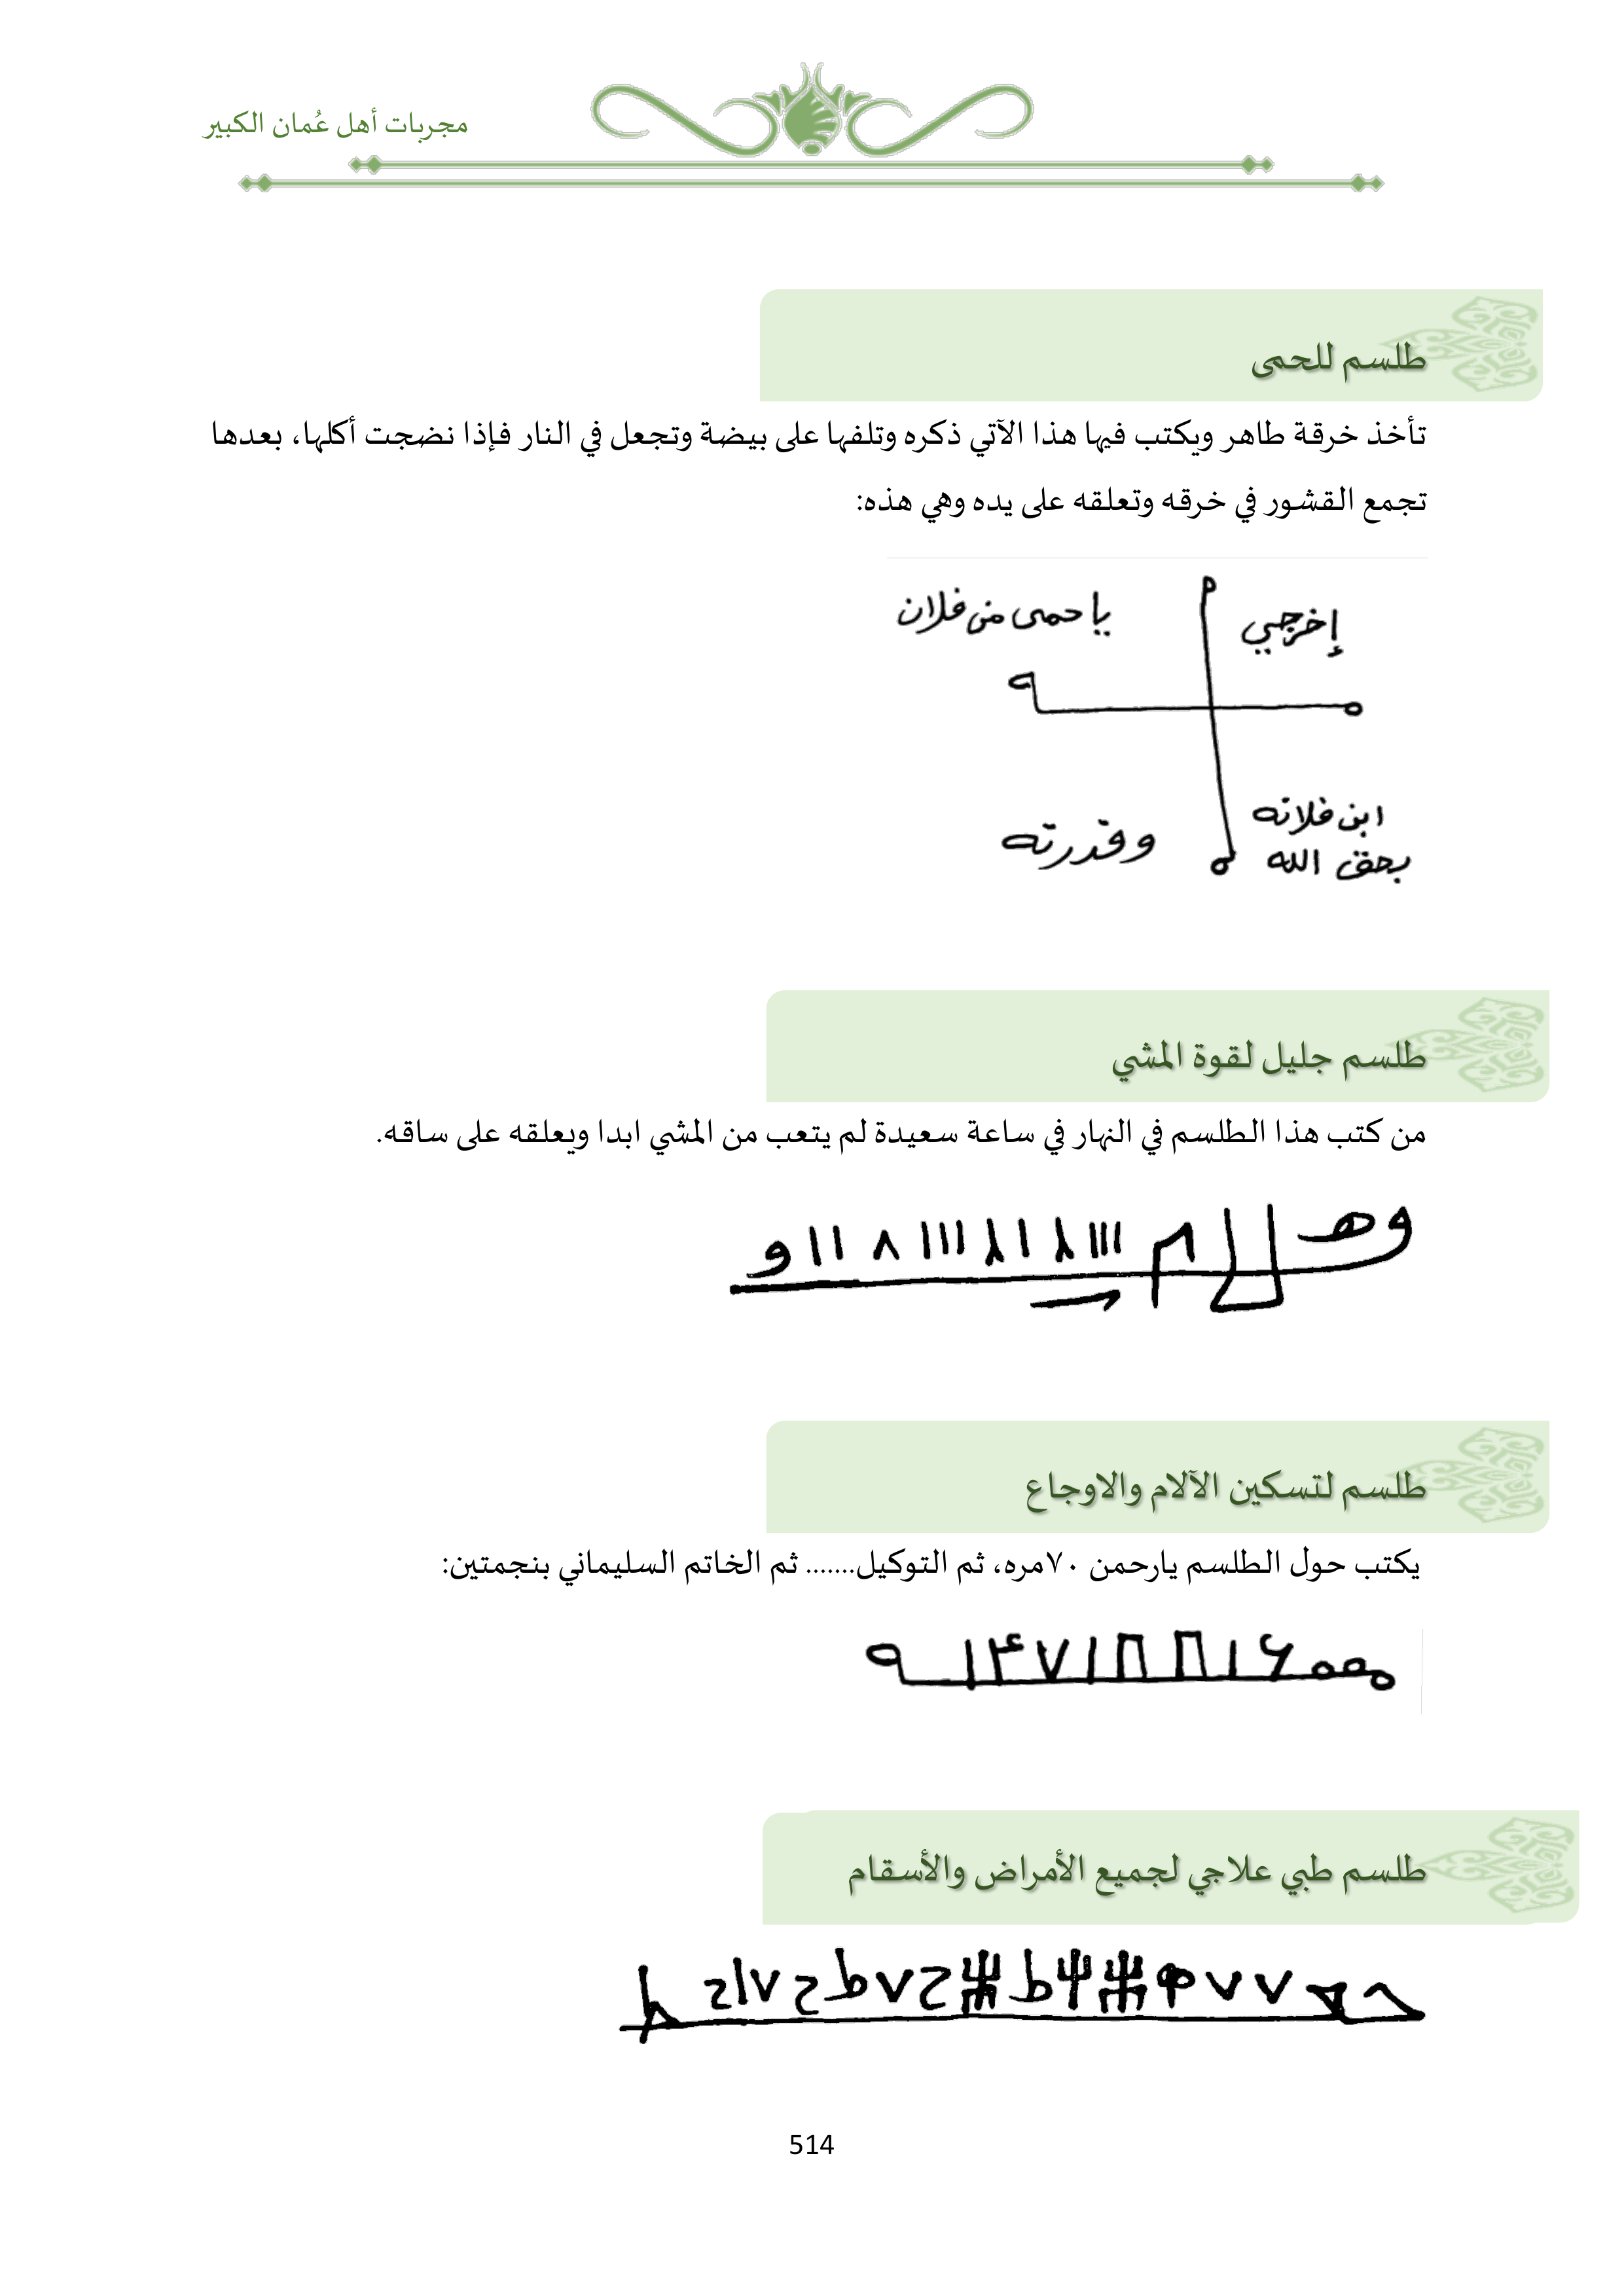 مجربات أهل عُمان الكبير
طلسم للحمى
تأخذ خرقة طاهر ويكتب فيها هذا الآتي ذكره وتلفها على بيضة وتجعل في النار فإذا نضجت أكلها، بعدها
تجمع القشور في خرقه وتعلقه على يده وهي هذه:
إخرجي
ياحمى من فلان
ابن فلانه
بحق الله
وقدرته
طلسم جليل لقوة المشي
من كتب هذا الطلسم في النهار في ساعة سعيدة لم يتعب من المشي ابدا ويعلقه على ساقه.
طلسم لتسكين الآلام والاوجاع
يكتب حول الطلسم يارحمن ٧٠مره، ثم التوكيل....... ثم الخاتم السليماني بنجمتين:
طلسم طبي علاجي لجميع الأمراض والأسقام
514